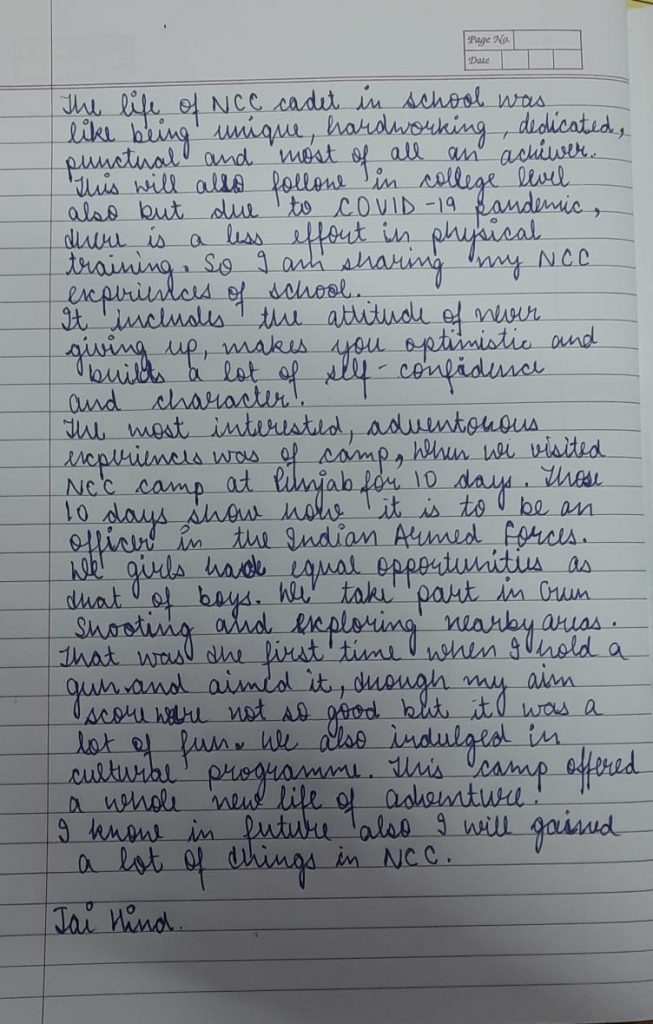 Page No.
Date
The life of NCC cadet in school was
like being unique, hardworking, dedicated,
punctual and most of all an achiver.
This will also follow in college level
also but due to COVID-19 pandemic,
there is a less effort in physical
training. So I am sharing my NCC
experiences of school.
It includes the attitude of never
giving up, makes you optimistic and
builds a lot of self-confidence
and character.
The most interested, adventourous
experiences was of camp, when we visited
NCC camp at Punjab for 10 days. Those
10 days show how it is to be an
officer in the Indian Armed Forces.
We girls have equal opportunities as
that of boys. We take part in Gun
Shooting and exploring nearby areas.
That was the first time when I hold a
gun and aimed it, though my aim
score were not so good but it was a
lot of fun. We also indulged in
cultural programme. This camp offered
a whole new life of adventure.
I know in future also I will gained
a lot of things in NCC.
Jai Hind.